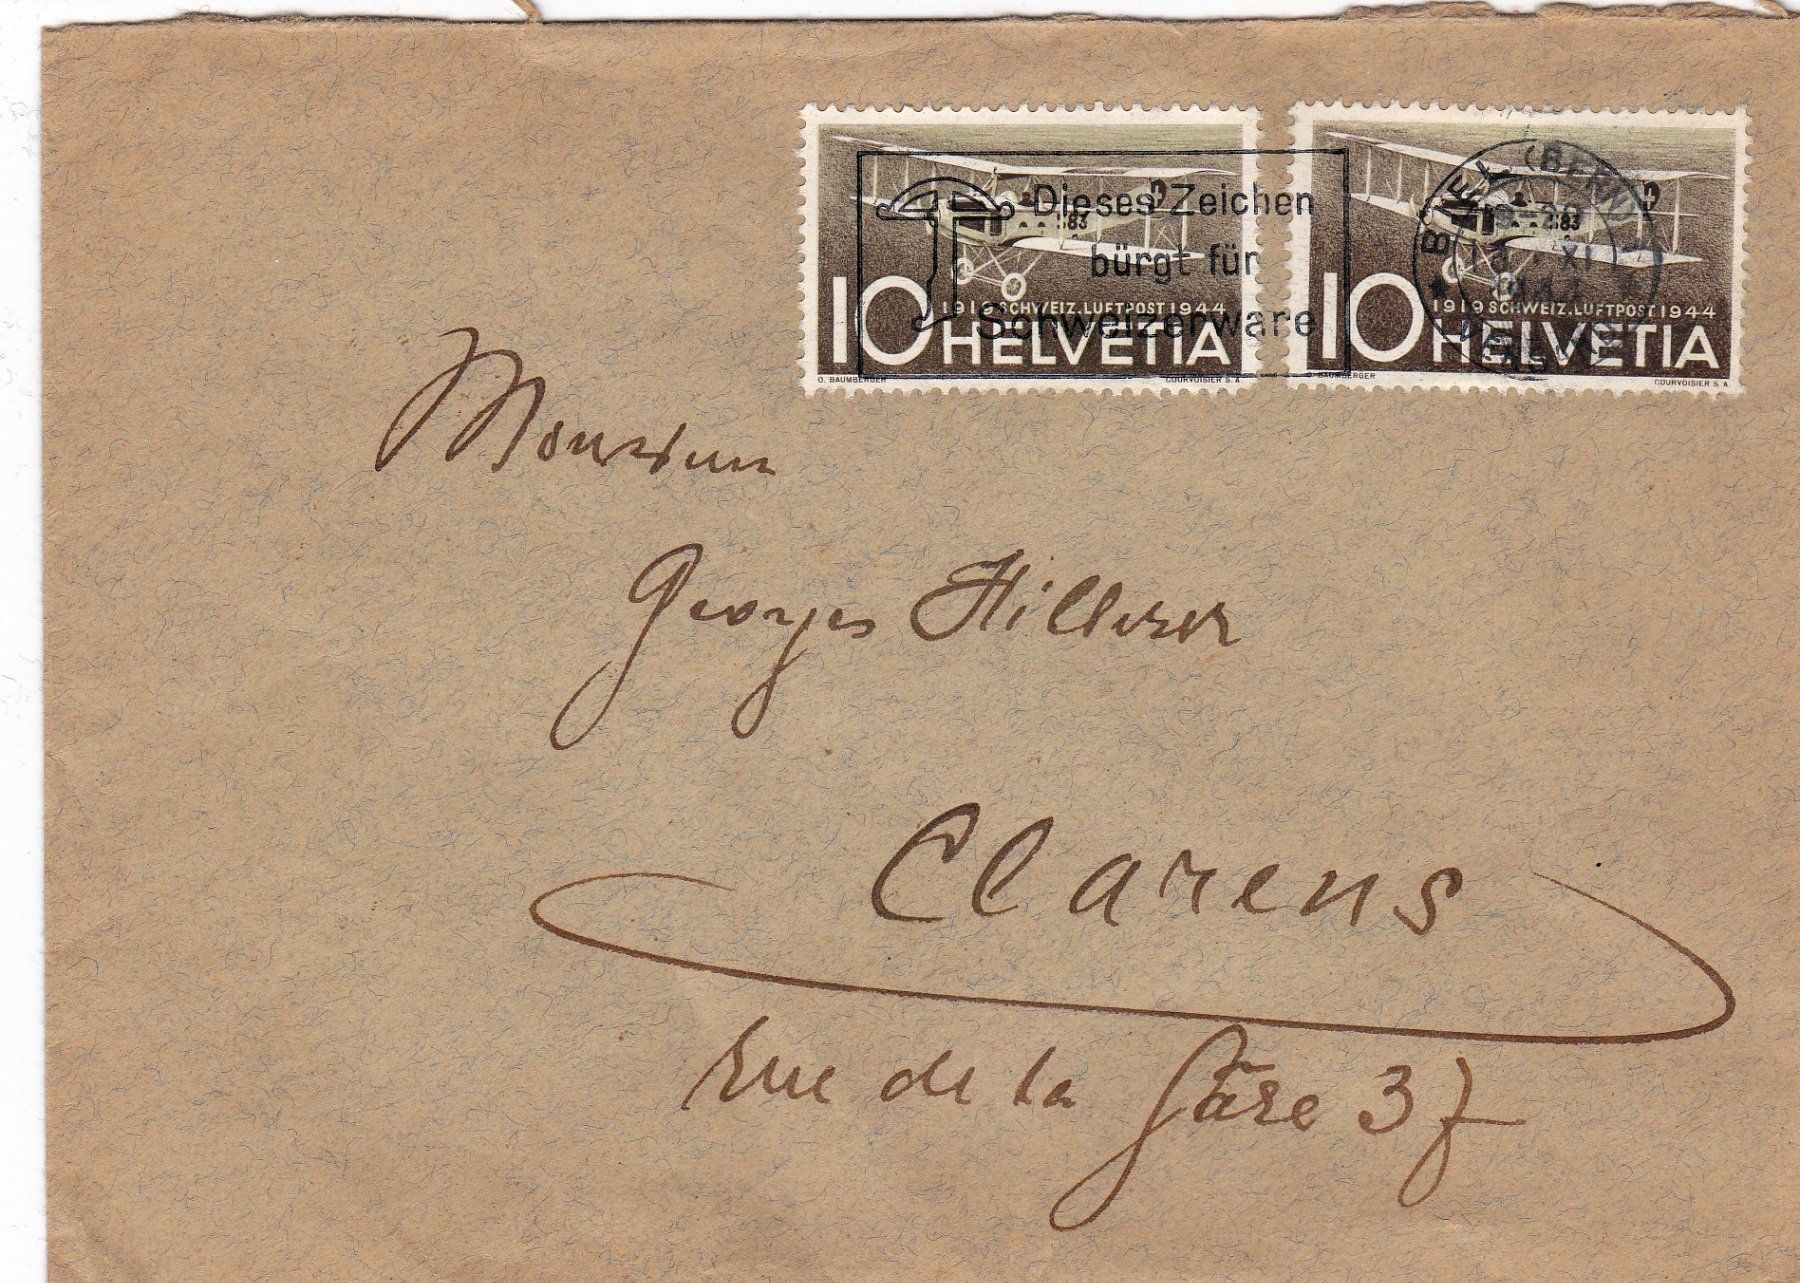 Dieses Zeichen
bürgt für
Schweizerware
83
1919 SCHWEIZ. LUFTPOST 1944
10 HELVETIA
O. BAUMBERGER COURVOISIER S. A.
BIEL (BERN)
XI
1944
83
1919 SCHWEIZ. LUFTPOST 1944
10 HELVETIA
BAUMBERGER COURVOISIER S. A.
Monsieur
Georges
Clarens
Rue de la Gare 37